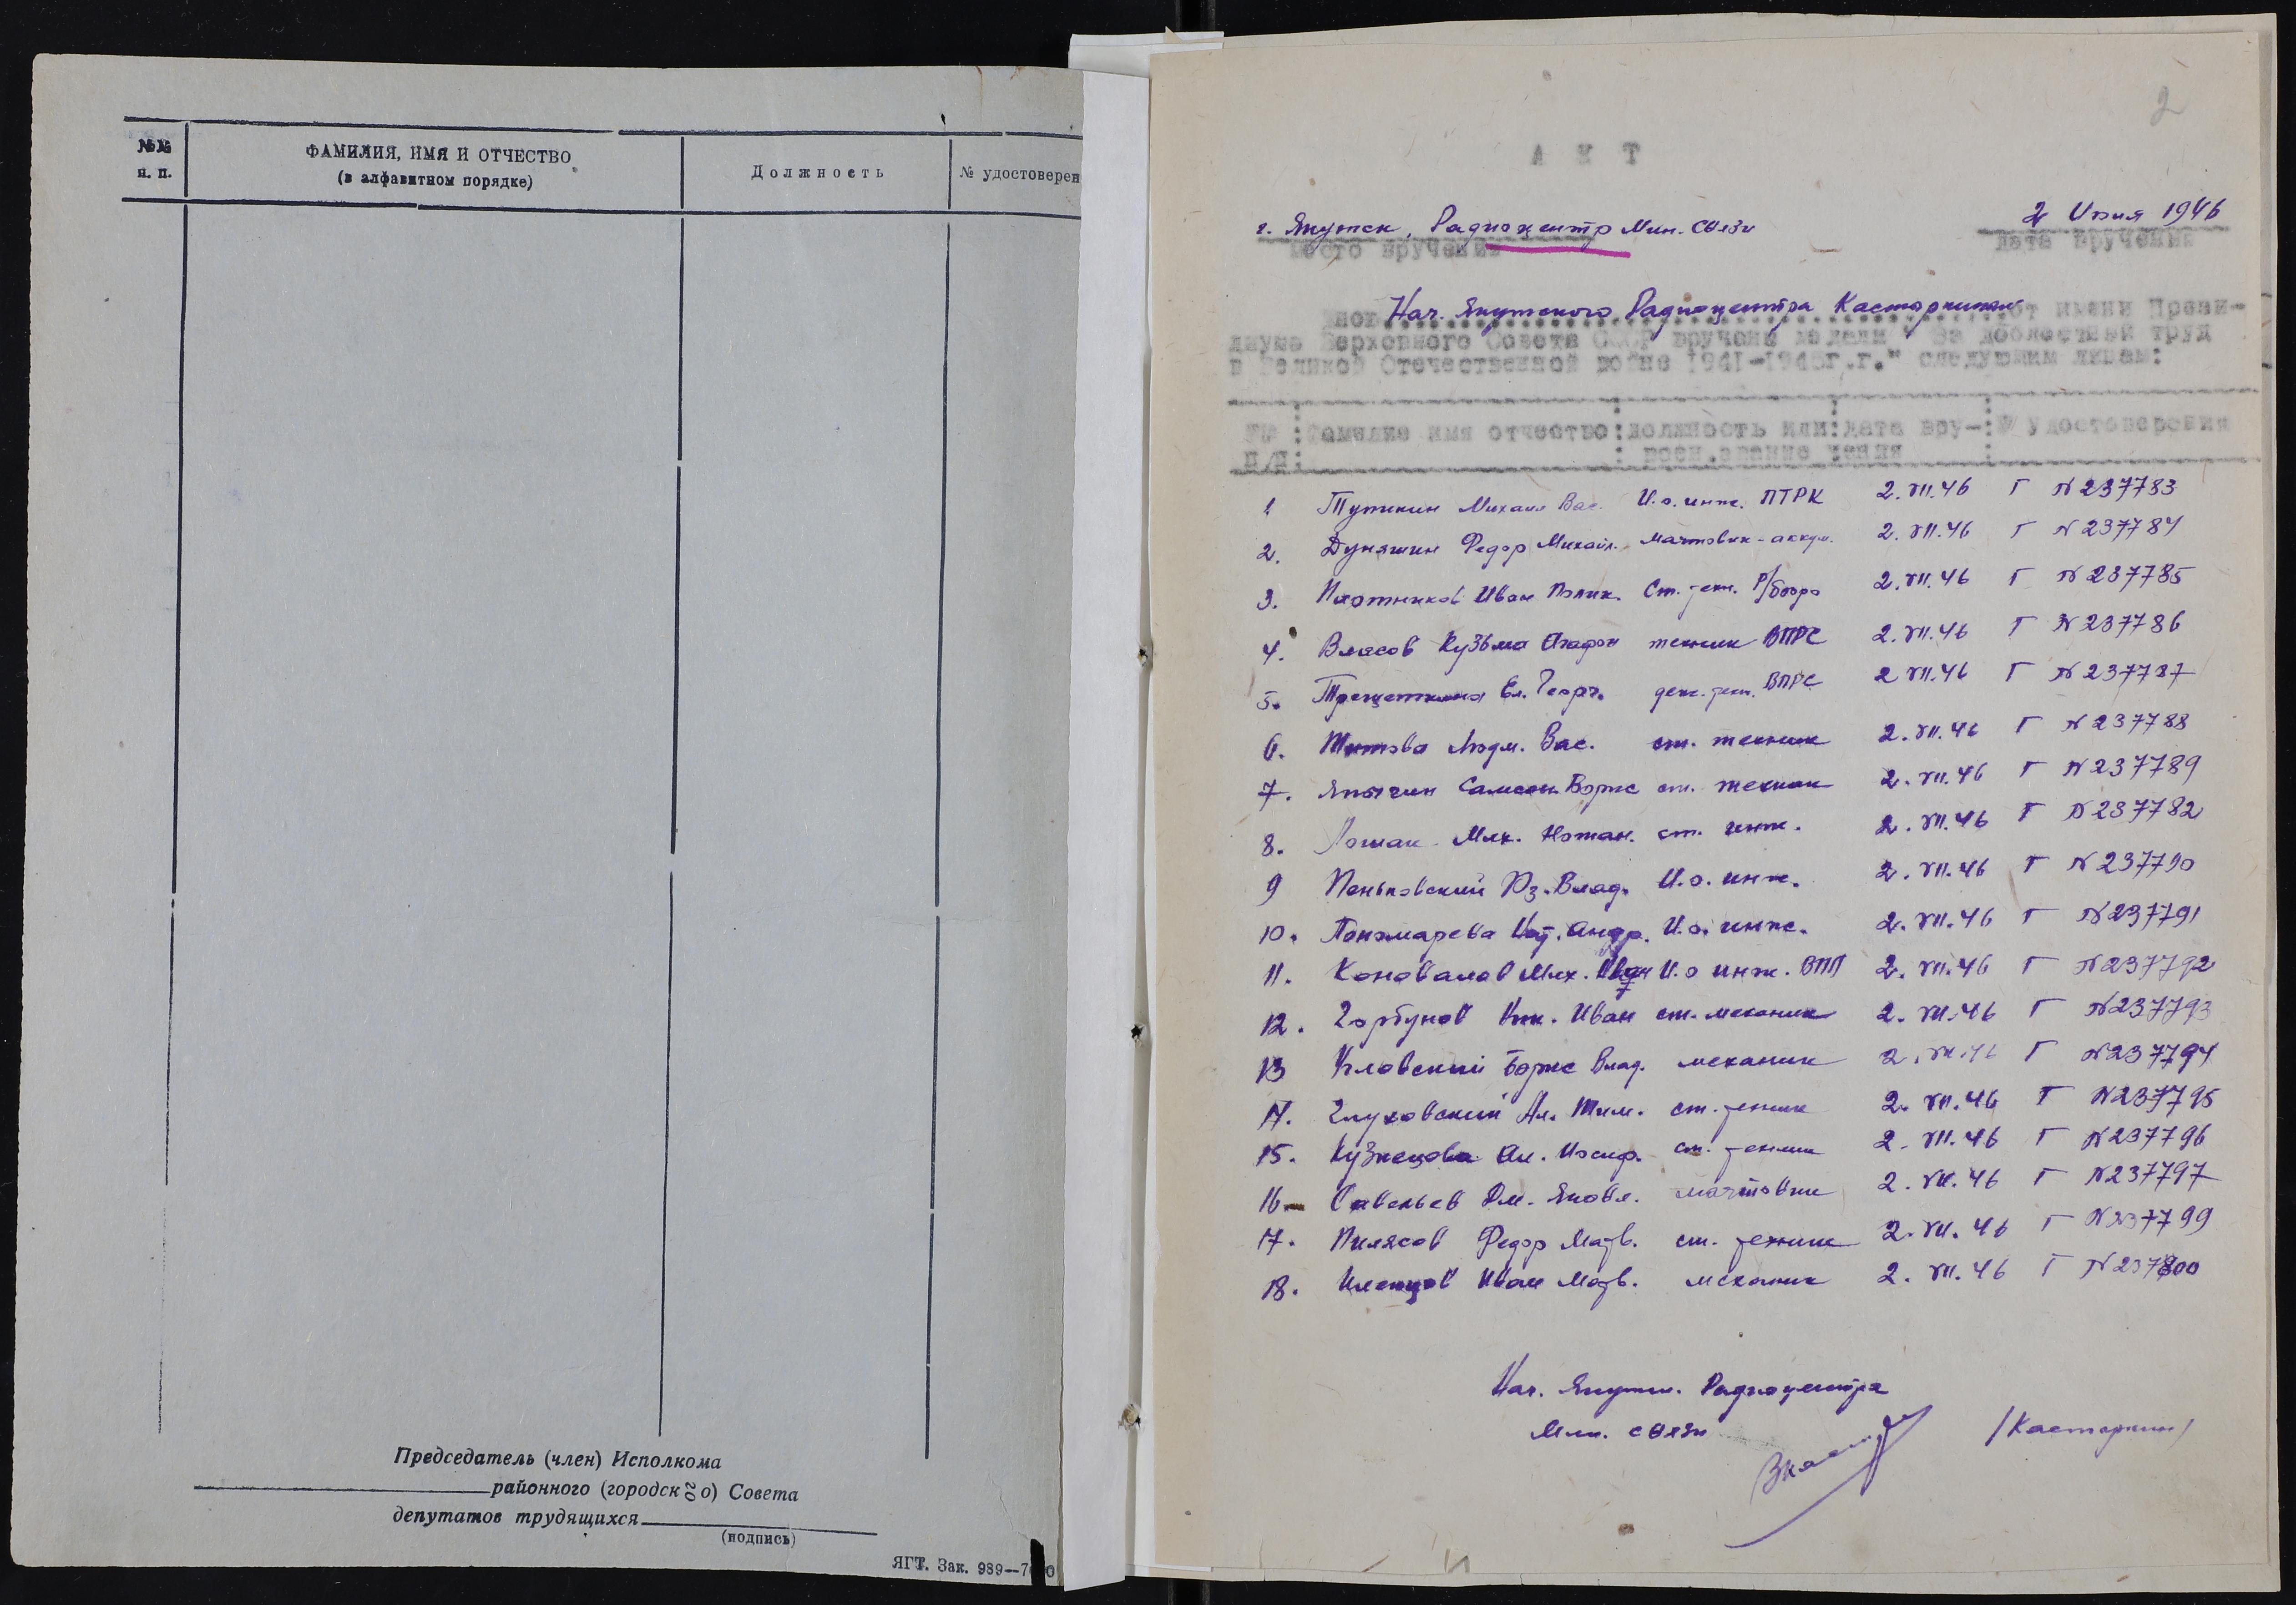 №№
п. п.
ФАМИЛИЯ, ИМЯ И ОТЧЕСТВО
(в алфавитном порядке)
Должность
№ удостоверен
Председатель (член) Исполкома
районного (городского) Совета
депутатов трудящихся
(подпись)
ЯГТ. Зак. 989—7
2
АКТ
г. Якутск, Радиоцентр Мин. связи
место вручения
2 Июля 1946
дата вручения
Мною Нач. Якутского Радиоцентра Касторкиным от имени Прези-
диума Верховного Совета СССР вручены медали "За доблестный труд
в Великой Отечественной войне 1941-1945г.г." следующим лицам:
№№ п/п : Фамилия имя отчество : должность или воен.звание : дата вру-чения : № удостоверения
1 Тупикин Михаил Вас. И.о. инж. ПТРК 2.VII.46 Г N 237783
2. Дуняшин Федор Михайл. мачтовик-аккум. 2.VII.46 Г N 237784
3. Плотников Иван Полик. Ст. техн. Р/бюро 2.VII.46 Г N 237785
4. Власов Кузьма Агафон техник ВПРС 2.VII.46 Г N 237786
5. Трещеткина Ел. Георг. деж. техн. ВПРС 2 VII.46 Г N 237787
6. Титова Людм. Вас. ст. техник 2.VII.46 Г N 237788
7. Самсон Борис ст. техник 2.VII.46 Г N 237789
8. Лошак Мих. Нотан. ст. инж. 2.VII.46 Г N 237782
9 Пеньковский Юз. Влад. И.о. инж. 2.VII.46 Г N 237790
10. Пономарева Андр. И.о. инж. 2.VII.46 Г N 237791
11. Коновалов Мих. Иван И.о инж. ВПП 2.VII.46 Г N 237792
12. Горбунов Ник. Иван ст. механик 2.VII.46 Г N 237793
13 Кловский Борис Влад. механик 2.VII.46 Г N 237794
14. Глуховский Ал. Тим. ст. техник 2.VII.46 Г N 237795
15. Кузнецова Ал. Иосиф. ст. техник 2.VII.46 Г N 237796
16 Савельев Дм. Яковл. мачтовик 2.VII.46 Г N 237797
17. Пилясов Федор Матв. ст. техник 2.VII.46 Г N 237799
18. Иван Матв. механик 2.VII.46 Г N 237800
Нач. Якутск. Радиоцентра
Мин. связи
/Касторкин/